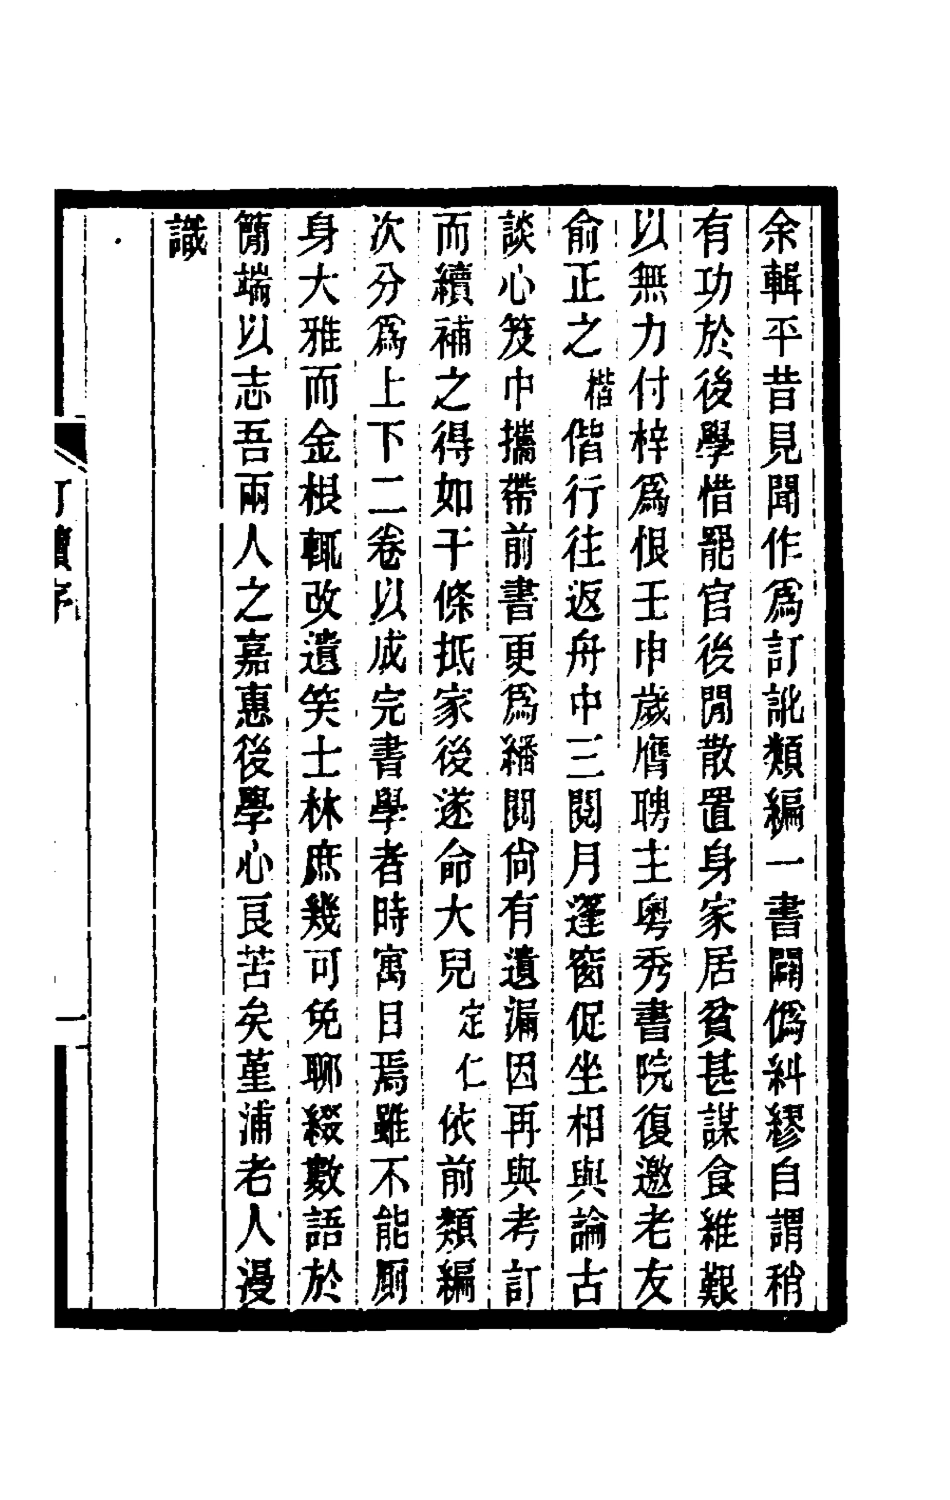 余輯平昔見聞作爲訂訛類編一書闢僞糾繆自謂稍
有功於後學惜罷官後閒散置身家居貧甚謀食維艱
以無力付梓爲恨壬申歲膺聘主粤秀書院復邀老友
俞正之楷偕行往返舟中三閱月蓬窗促坐相與論古
談心笈中攜帶前書更爲繙閱尙有遺漏因再與考訂
而續補之得如干條抵家後遂命大兒定仁依前類編
次分爲上下二卷以成完書學者時寓目焉雖不能厠
身大雅而金根輒改遺笑士林庶幾可免聊綴數語於
簡端以志吾兩人之嘉惠後學心良苦矣堇浦老人漫
識
訂續序
一